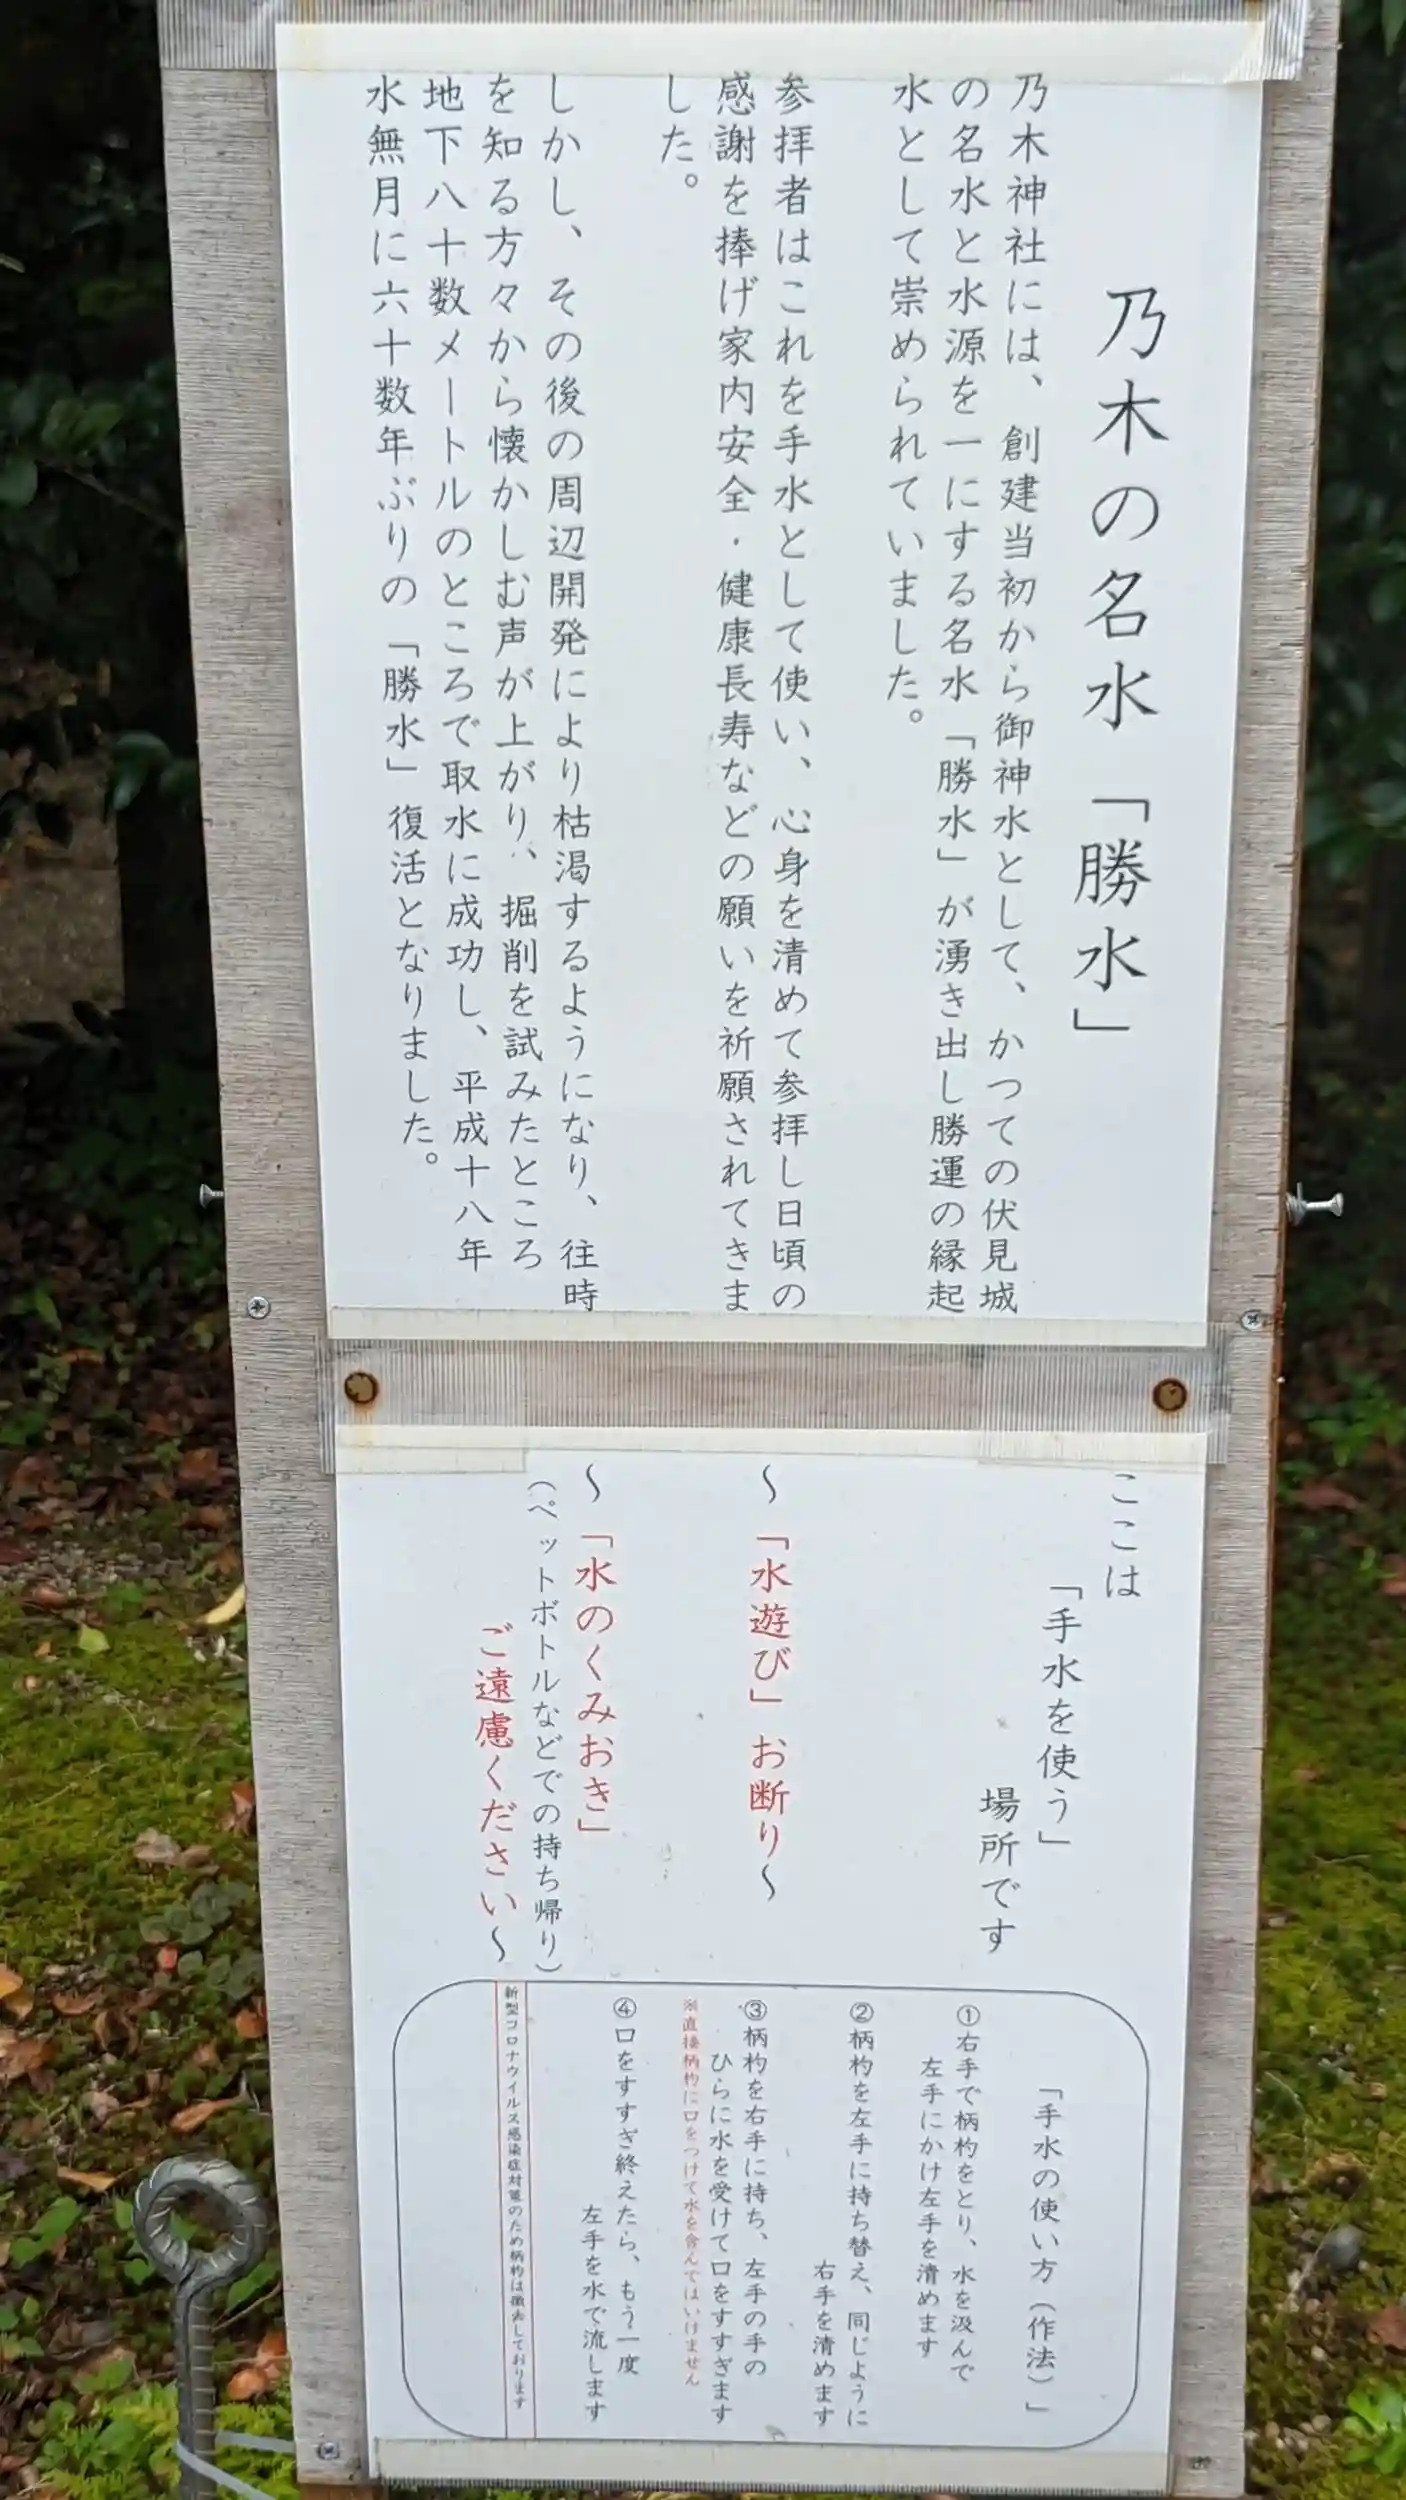 乃木の名水「勝水」
乃木神社には、創建当初から御神水として、かつての伏見城
の名水と水源を一にする名水「勝水」が湧き出し勝運の縁起
水として崇められていました。
参拝者はこれを手水として使い、心身を清めて参拝し日頃の
感謝を捧げ家内安全・健康長寿などの願いを祈願されてきま
した。
しかし、その後の周辺開発により枯渇するようになり、往時
を知る方々から懐かしむ声が上がり、掘削を試みたところ
地下八十数メートルのところで取水に成功し、平成十八年
水無月に六十数年ぶりの「勝水」復活となりました。
ここは
「手水を使う」
場所です
～「水遊び」お断り～
～「水のくみおき」
（ペットボトルなどでの持ち帰り）
ご遠慮ください～
「手水の使い方（作法）」
①右手で柄杓をとり、水を汲んで
左手にかけ左手を清めます
②柄杓を左手に持ち替え、同じように
右手を清めます
③柄杓を右手に持ち、左手の手の
ひらに水を受けて口をすすぎます
※直接柄杓に口をつけて水を含んではいけません
④口をすすぎ終えたら、もう一度
左手を水で流します
新型コロナウイルス感染症対策のため柄杓は撤去しております